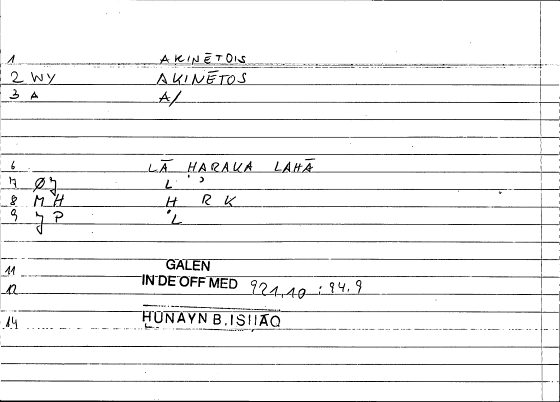 1 AKINĒTOIS
2 WY AKINĒTOS
3 A A/
6 LĀ HARAKA LAHĀ
7 ØJ L ' '
8 MH H R K
9 JP L
11 GALEN
12 IN DE OFF MED 921,10 : 94.9
14 HUNAYN B. ISHAQ